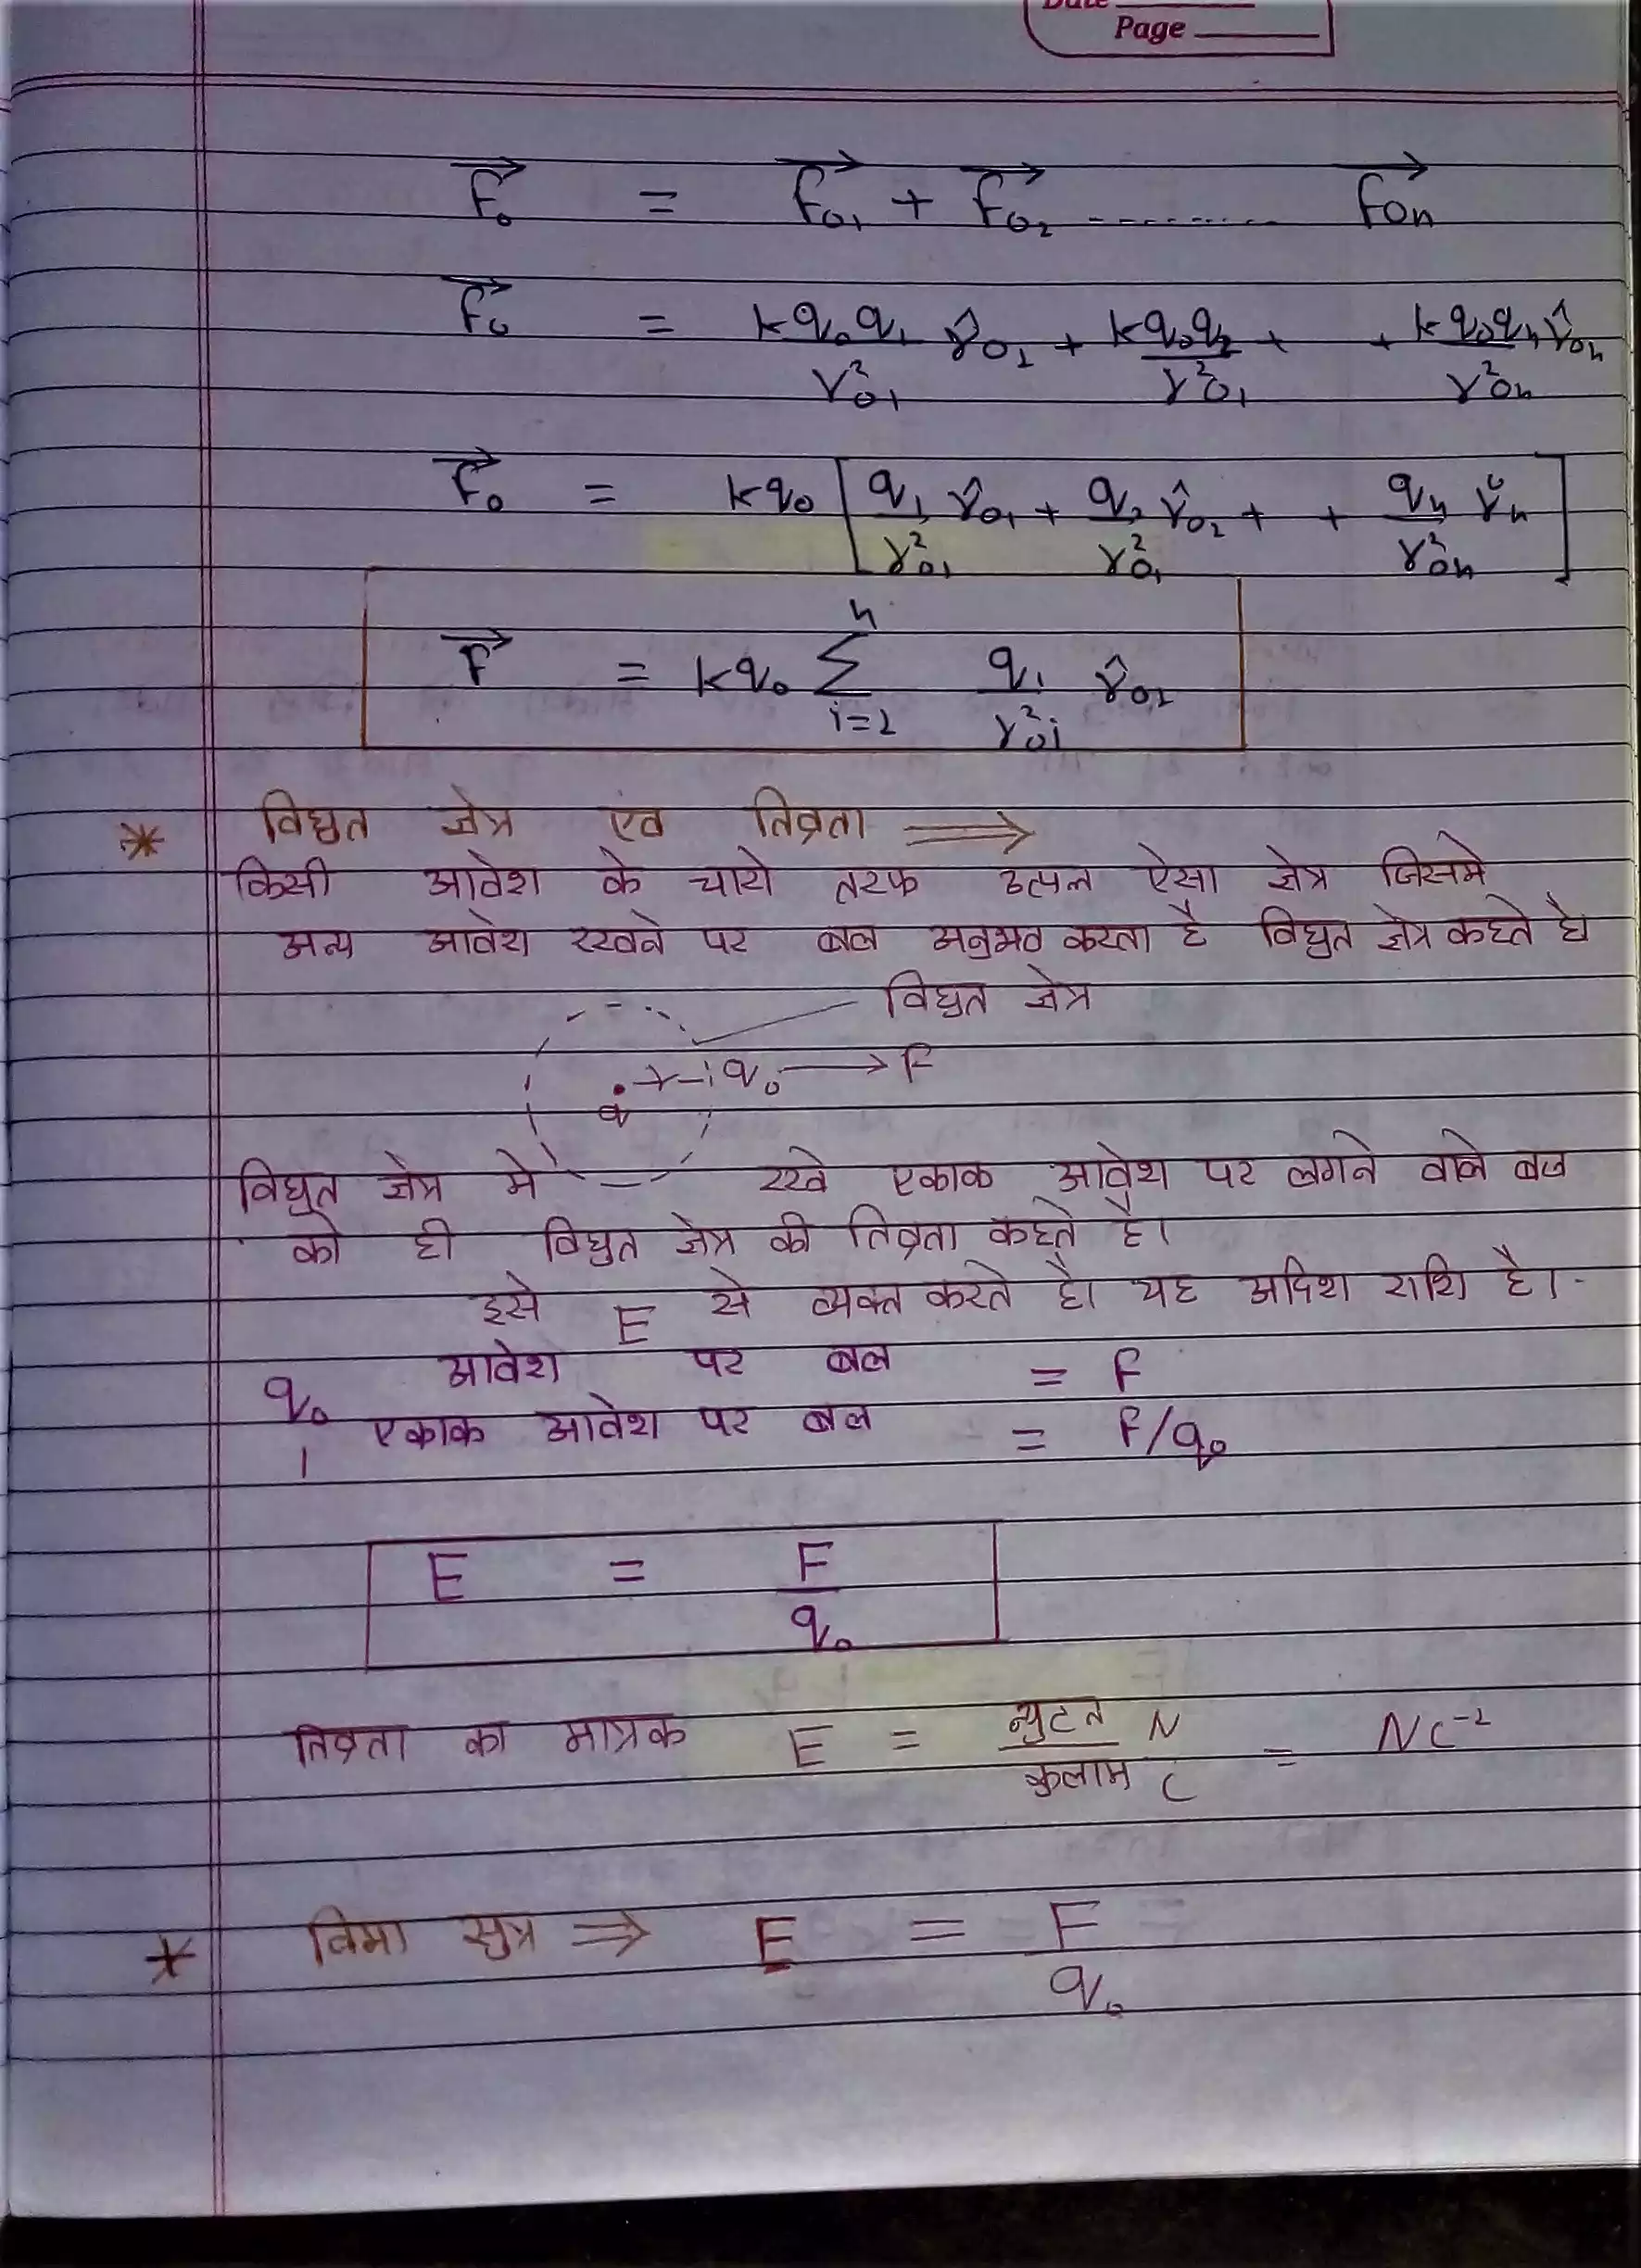 Date
Page
F₀⃗ = F₀₁⃗ + F₀₂⃗ --------- F₀n⃗
F₀⃗ = kq₀q₁/r²₀₁ r̂₀₁ + kq₀q₂/r²₀₁ + + kq₀qn/r²₀n r̂₀n
F₀⃗ = kq₀ [q₁/r²₀₁ r̂₀₁ + q₂/r²₀₁ r̂₀₂ + + qn/r²₀n r̂n]
F⃗ = kq₀ Σ (i=2, n) q₁/r²₀i r̂₀₂
* विधुत क्षेत्र एंव तिव्रता ⟹
किसी आवेश के चारो तरफ उत्पन्न ऐसा क्षेत्र जिसमे
अन्य आवेश रखने पर बल अनुभव करता है विधुत क्षेत्र कहते है
विधुत क्षेत्र
q₀ → F
q
विधुत क्षेत्र मे रखे एकाक आवेश पर लगने वाले बल
को ही विधुत क्षेत्र की तिव्रता कहते है।
इसे E से व्यक्त करते है। यह अदिश राशि है।
q₀ आवेश पर बल = F
1 एकाक आवेश पर बल = F/q₀
E = F/q₀
तिव्रता का मात्रक E = न्युटन N/कुलाम C = NC⁻²
* विमा सुत्र ⟹ E = F/q₀